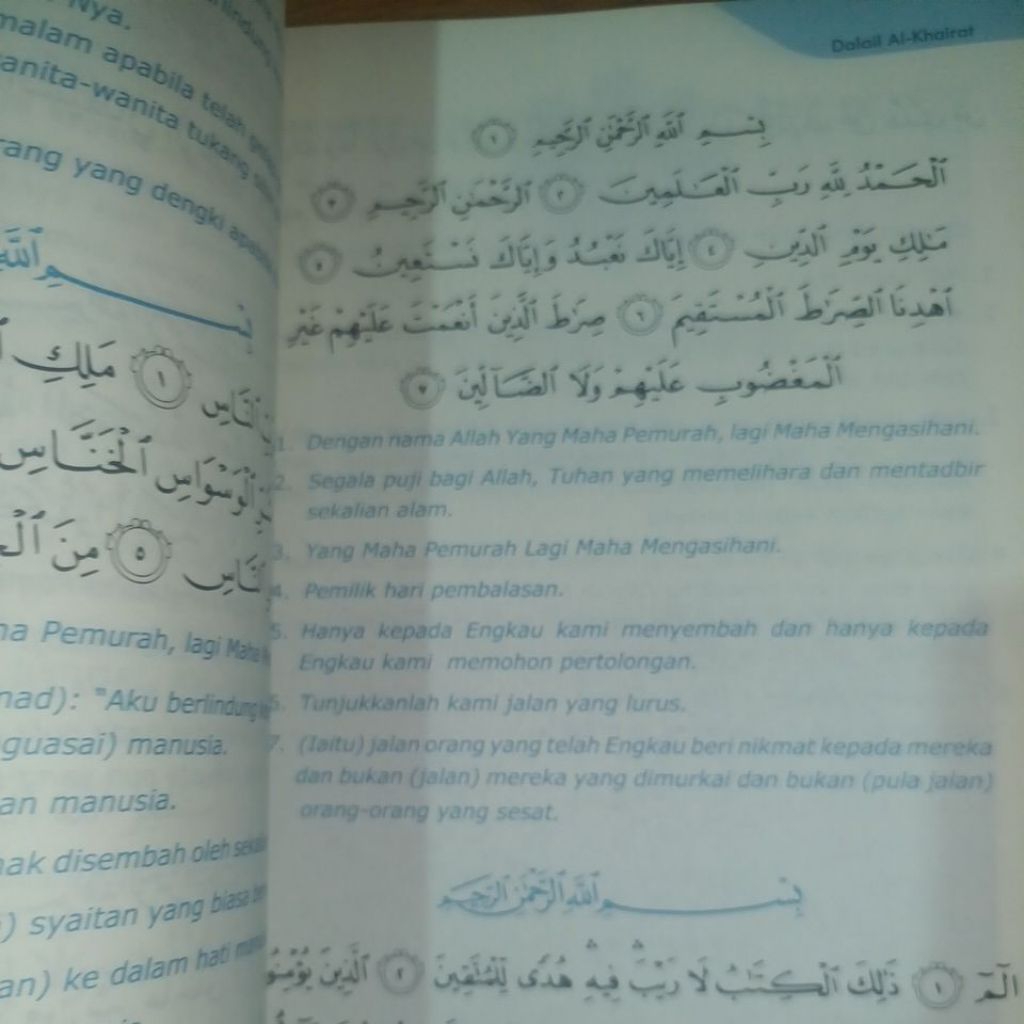 Nya.
malam apabila telah
wanita-wanita tukang
yang dengki
مَلِكِ
ٱلْوَسْوَاسِ ٱلْخَنَّاسِ
٥ مِنَ
Pemurah, lagi Maha
"Aku berlindung
manusia.
manusia.
disembah oleh
syaitan yang biasa
ke dalam hati
Dalail Al-Khairat
بِسْمِ ٱللَّهِ ٱلرَّحْمَٰنِ ٱلرَّحِيمِ ١
ٱلْحَمْدُ لِلَّهِ رَبِّ ٱلْعَٰلَمِينَ ٢ ٱلرَّحْمَٰنِ ٱلرَّحِيمِ ٣
مَٰلِكِ يَوْمِ ٱلدِّينِ ٤ إِيَّاكَ نَعْبُدُ وَإِيَّاكَ نَسْتَعِينُ ٥
ٱهْدِنَا ٱلصِّرَٰطَ ٱلْمُسْتَقِيمَ ٦ صِرَٰطَ ٱلَّذِينَ أَنْعَمْتَ عَلَيْهِمْ غَيْرِ
ٱلْمَغْضُوبِ عَلَيْهِمْ وَلَا ٱلضَّآلِّينَ ٧
1. Dengan nama Allah Yang Maha Pemurah, lagi Maha Mengasihani.
2. Segala puji bagi Allah, Tuhan yang memelihara dan mentadbir
sekalian alam.
3. Yang Maha Pemurah Lagi Maha Mengasihani.
4. Pemilik hari pembalasan.
5. Hanya kepada Engkau kami menyembah dan hanya kepada
Engkau kami memohon pertolongan.
6. Tunjukkanlah kami jalan yang lurus.
7. (Iaitu) jalan orang yang telah Engkau beri nikmat kepada mereka
dan bukan (jalan) mereka yang dimurkai dan bukan (pula jalan)
orang-orang yang sesat.
بِسْمِ ٱللَّهِ ٱلرَّحْمَٰنِ ٱلرَّحِيمِ
الٓمٓ ١ ذَٰلِكَ ٱلْكِتَٰبُ لَا رَيْبَ ۛ فِيهِ ۛ هُدًى لِّلْمُتَّقِينَ ٢ ٱلَّذِينَ